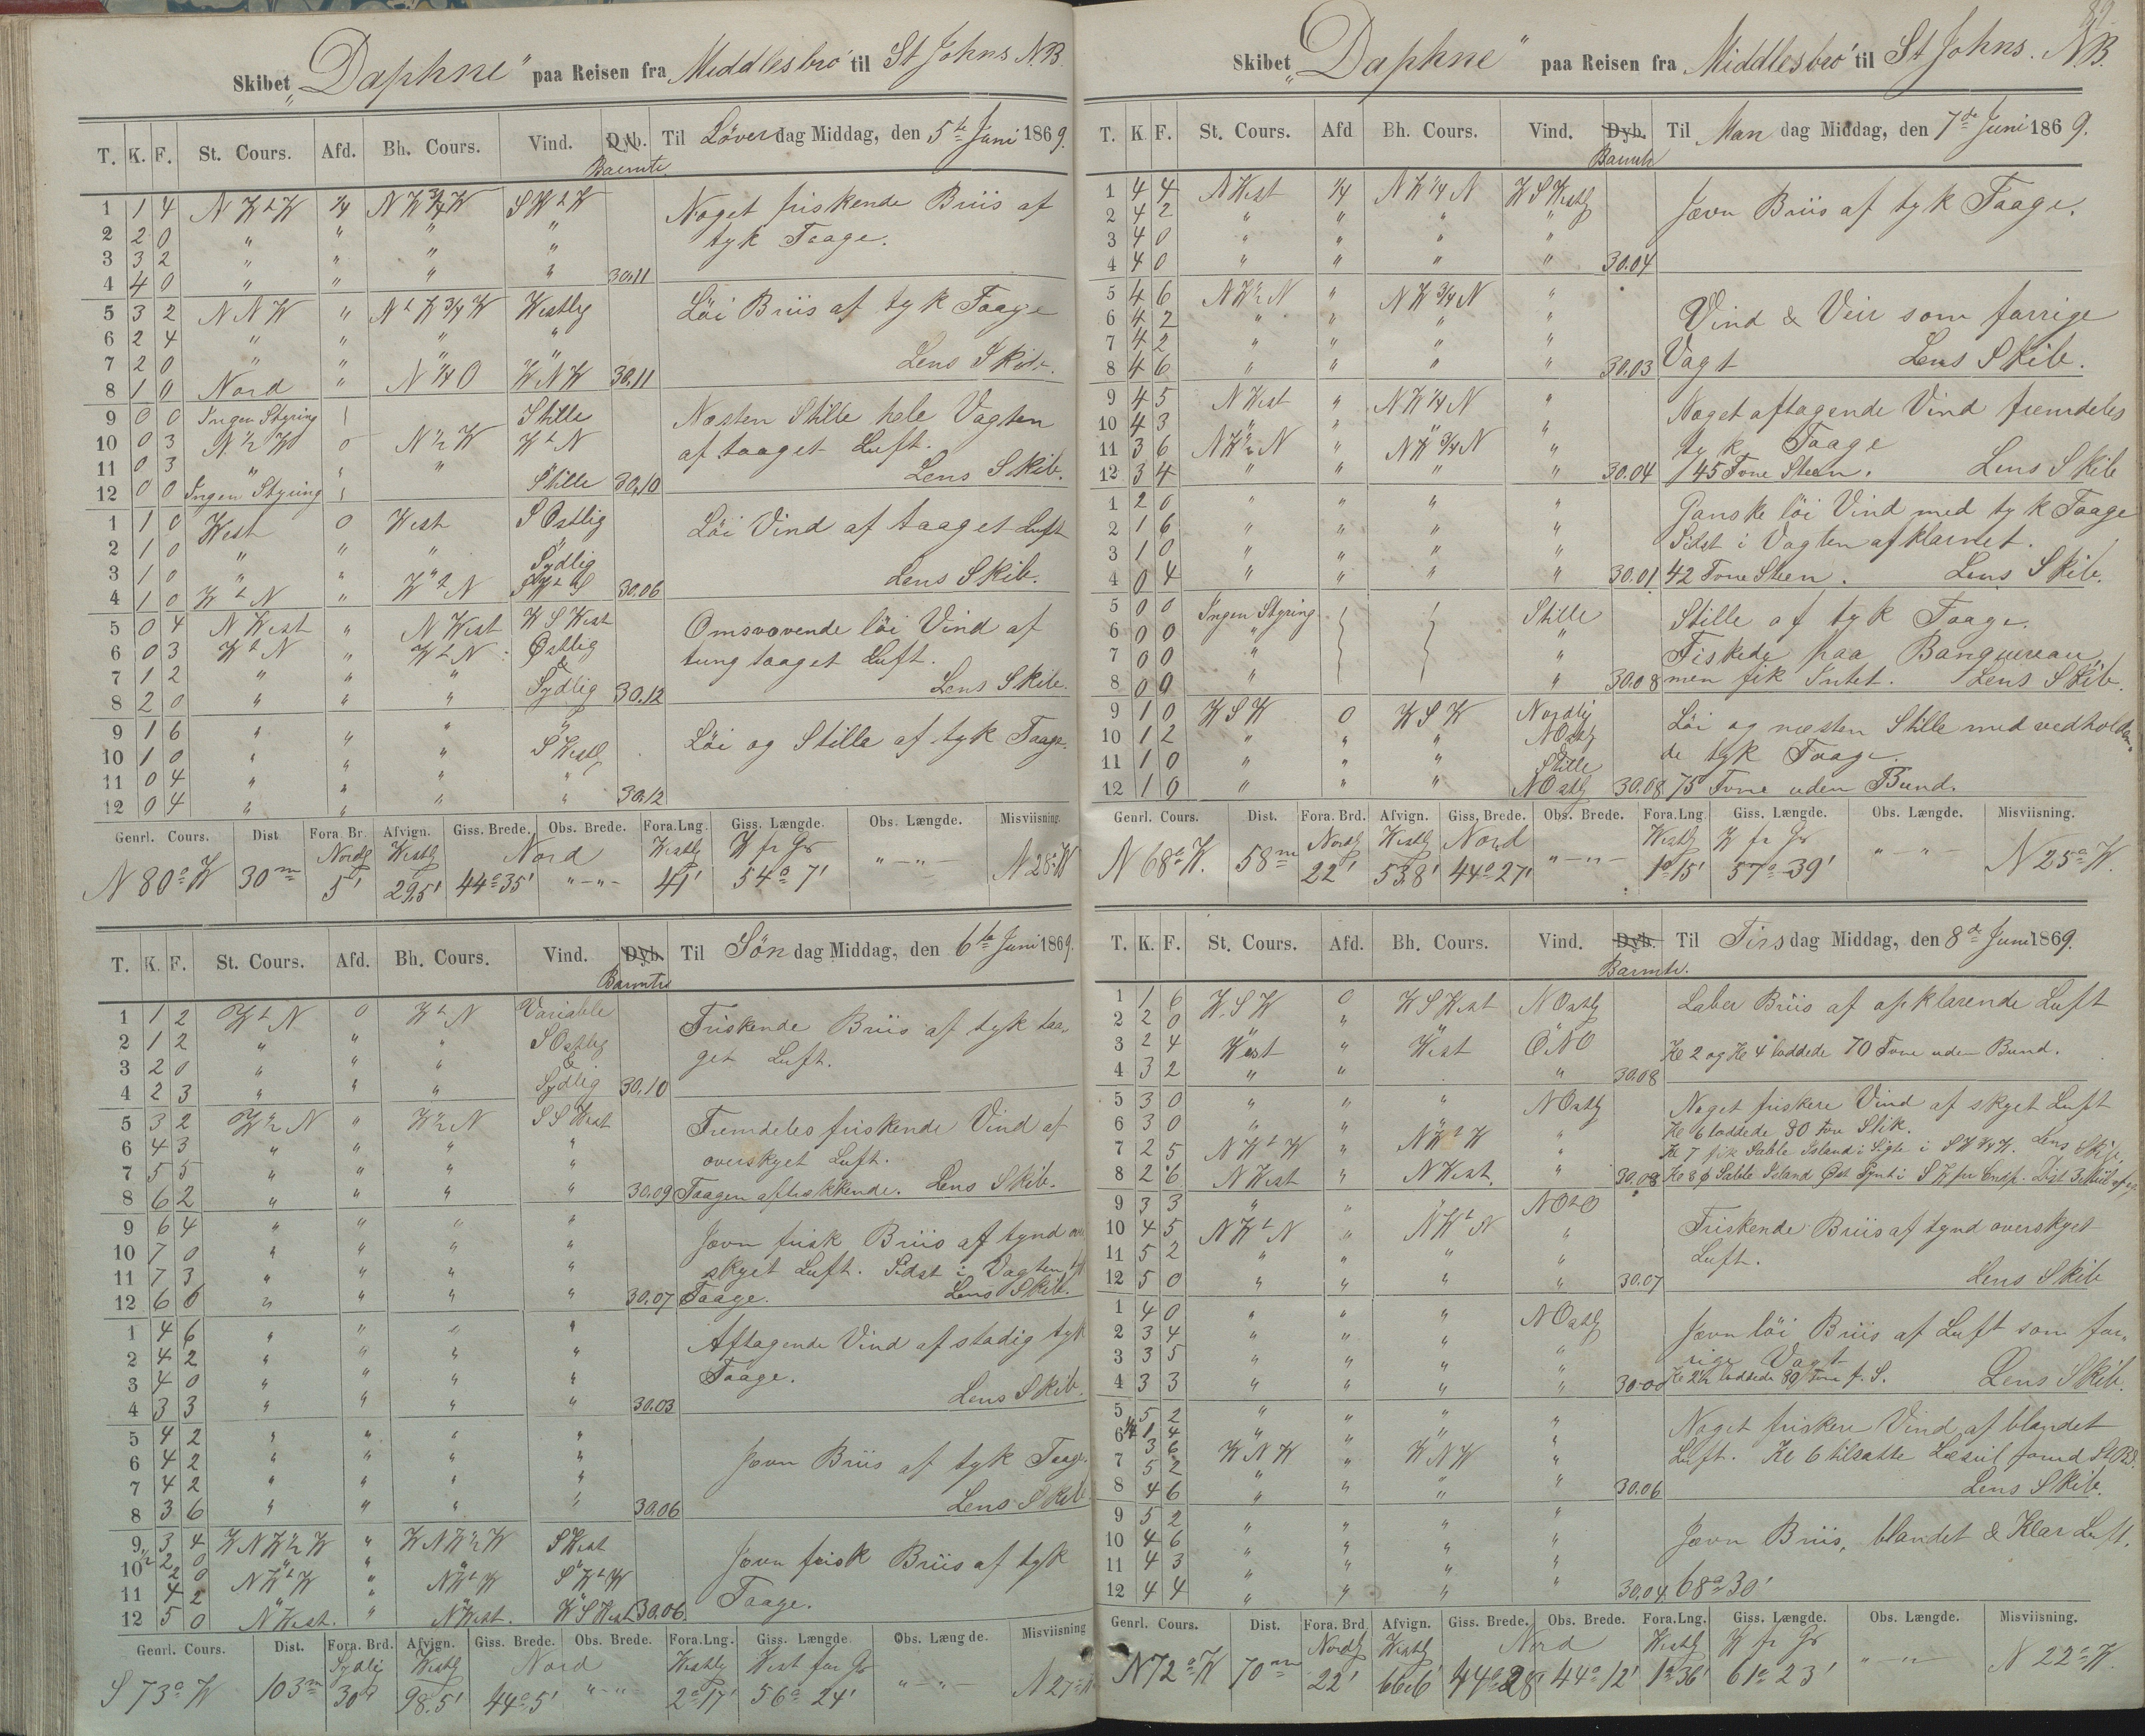 Skibet „Daphne" paa Reisen fra Middlesbro' til St Johns N.B.
T. K. F. St. Cours. Afd. Bh. Cours. Vind. Dyb. Til Löverdag Middag, den 5te Juni 1869.
Barmtr.
1 1 4 N W t W 1/4 N W 3/4 W S W t W Noget friskende Briis af
2 2 0 " " " " tyk Taage.
3 3 2 " " " "
4 4 0 " " " " 30.11
5 3 2 N N W " N t W 3/4 W Westlig Löi Briis af tyk Taage
6 2 4 " " " "
7 2 0 " " " " Lens Skib.
8 1 0 Nord " N 1/4 O W N W 30.11
9 0 0 Ingen Styring Stille Næsten Stille hele Vagten
10 0 3 N 1/2 W 0 N 1/2 W W t N af taaget Luft.
11 0 3 " " " Lens Skib.
12 0 0 Ingen Styring Stille 30.10
1 1 0 West 0 West S Ostlig Löi Vind af taaget Luft
2 1 0 " " " "
3 1 0 " " " Sydlig Lens Skib.
4 1 0 W t N " W t N 30.06
5 0 4 N West " N West W S West Omsvovende löi Vind af
6 0 3 W t N " W t N Østlig tung taaget Luft.
7 1 2 " " " & Lens Skib.
8 2 0 " " " Sydlig 30.12
9 1 6 " " " " Löi og Stille af tyk Taage.
10 1 0 " " " S Westl
11 0 4 " " "
12 0 4 " " " " 30.12
Genrl. Cours. Dist Fora. Br. Afvign. Giss. Brede. Obs. Brede. Fora.Lng. Giss. Længde. Obs. Længde. Misviisning.
Nordlg Westlg Nord Westlg W fr Gr
N 80° W 30m 5' 29.5' 44° 35' "–"– 41' 54° 7' "–"– N 28° W
T. K. F. St. Cours. Afd. Bh. Cours. Vind. Dyb. Til Söndag Middag, den 6te Juni 1869.
Barmtr
1 1 2 W t N 0 W t N Variable Friskende Briis af tyk taa„
2 1 2 " " " S Ostlig get Luft.
3 2 0 " " " &
4 2 3 " " " Sydlig 30.10
5 3 2 W 1/2 N " W 1/2 N S S West Fremdeles friskende Vind af
6 4 3 " " " " overskyet Luft.
7 5 5 " " " "
8 6 2 " " " " 30.09 Taagen aftrækkende. Lens Skib.
9 6 4 " " " " Jævn frisk Briis af tynd
10 7 0 " " " " skyet Luft. Sidst i Vagten
11 7 3 " " " "
12 6 6 " " " " 30.07 Taage. Lens Skib.
1 4 6 " " " " Aftagende Vind af stadig tyk
2 4 2 " " " " Taage.
3 4 0 " " " " Lens Skib.
4 3 3 " " " " 30.03
5 4 2 " " " "
6 4 2 " " " " Jævn Briis af tyk Taage.
7 4 2 " " " " Lens Skib
8 3 6 " " " " 30.06
9 3 4 W N W 1/2 W " W N W 1/2 W S West Jævn frisk Briis af tyk
10 1/2 2 0 " " " "
2 0 N W t W " N W t W S W t W Taage.
11 4 2 " " " "
12 5 0 N West. " N West. W S West 30.06
Genrl. Cours. Dist. Fora. Brd. Afvign. Giss. Brede. Obs. Brede. Fora.Lng. Giss. Længde. Obs. Længde. Misviisning
Sydlig Westlg Nord Westlg West for Gr
S 73° W 103m 30' 98.5' 44° 5' "–"– 2° 17' 56° 24' "–"– N 27° W
Skibet „Daphne" paa Reisen fra Middlesbro' til St Johns. N.B.
T. K. F. St. Cours. Afd Bh. Cours. Vind. Dyb. Til Mandag Middag, den 7de Juni 1869.
Barmtr
1 4 4 N West 1/4 N W 1/4 N W S Westlg Jævn Briis af tyk Taage.
2 4 2 " " " "
3 4 0 " " " "
4 4 0 " " " " 30.04
5 4 6 N W 1/2 N " N W 3/4 N " Vind & Veir som forrige
6 4 2 " " " "
7 4 2 " " " "
8 4 6 " " " " 30.03 Vagt Lens Skib.
9 4 5 N West " N W 1/4 N " Noget aftagende Vind fremdeles
10 4 3 " " " " tyk Taage
11 3 6 N W 1/2 N " N W 3/4 N "
12 3 4 " " " " 30.04 45 Fvne Steen. Lens Skib
1 2 0 " " " " Ganske löi Vind med tyk Taage
2 1 6 " " " " Sidst i Vagten afklarnet.
3 1 0 " " " "
4 0 4 " " " " 30.01 42 Fvne Steen. Lens Skib.
5 0 0 Ingen Styring Stille Stille af tyk Taage.
6 0 0 " " Fiskede paa Banquereau
7 0 0 " "
8 0 0 " " 30.08 men fik Intet. Lens Skib.
9 1 0 W S W 0 W S W Nordlig Löi og næsten Stille med vedholden„
10 1 2 " " " N Ostlg de tyk Taage.
11 1 0 " " " & Stille
12 1 0 " " " N Ostlg 30.08 75 Fvne uden Bund.
Genrl. Cours. Dist. Fora. Brd. Afvign. Giss. Brede. Obs. Brede. Fora.Lng Giss. Længde. Obs. Længde. Misviisning.
Nordlg Westlg Nord Westlg W fr Gr
N 68° W. 58m 22' 53.8' 44° 27' "–"– 1° 15' 57° 39' "–"– N 25° W.
T. K. F. St. Cours. Afd. Bh. Cours. Vind. Dyb. Til Tirsdag Middag, den 8de Juni 1869.
Barmtr.
1 1 6 W S W 0 W S West N Ostlg Laber Briis af opklarende Luft
2 2 0 " "
3 2 4 West " West O N O Kl 2 og Kl 4 loddede 70 Fvne uden Bund.
4 3 2 " " " 30.08
5 3 0 " " " N Ostlg Noget friskere Vind af skyet Luft
6 3 0 " " " Kl 6 loddede 30 Fvn Slik.
7 2 5 N W t W " N W t W " Kl 7 fik Sable Island i Sigte i S W 3/4 W. Lens Skib.
8 2 6 N West " N West. " 30.08 Kl 8 Sable Island Øst Pynt i S W per Comp. Dist 3 Miil
9 3 3 " " " N O t O
10 4 5 N W t N " N W t N " Friskende Briis af tynd overskyet
11 5 2 " " " " Luft.
12 5 0 " " " " 30.07 Lens Skib
1 4 0 " " " N Ostlg
2 3 4 " " " Jævn löi Briis af Luft som for„
3 3 5 " " " " rige Vagt
4 3 3 " " " " 30.00 Kl 2 1/2 loddede 80 Fvne f. S. Lens Skib.
5 5 2 " " " " Noget friskere Vind af blandet
6 1/4 1 4 " " "
3 6
7 5 2 W N W " W N W " Luft. Kl 6 tilsatte Læseil
8 4 6 " " " " 30.06 Lens Skib.
9 5 2 " " " "
10 4 6 " " " " Jævn Briis, blandet & Klar Luft.
11 4 3 " " " "
12 4 4 " " " " 30.04 68° 30'
Genrl. Cours. Dist. Fora. Brd Afvign. Giss. Brede. Obs. Brede. Fora.Lng. Giss. Længde. Obs. Længde. Misviisning.
Nordlg Westlg Nord Westlg W fr Gr
N 72° W 70m 22' 66.6' 44° 28' 44° 12' 1° 36' 61° 23' "–"– N 22° W.